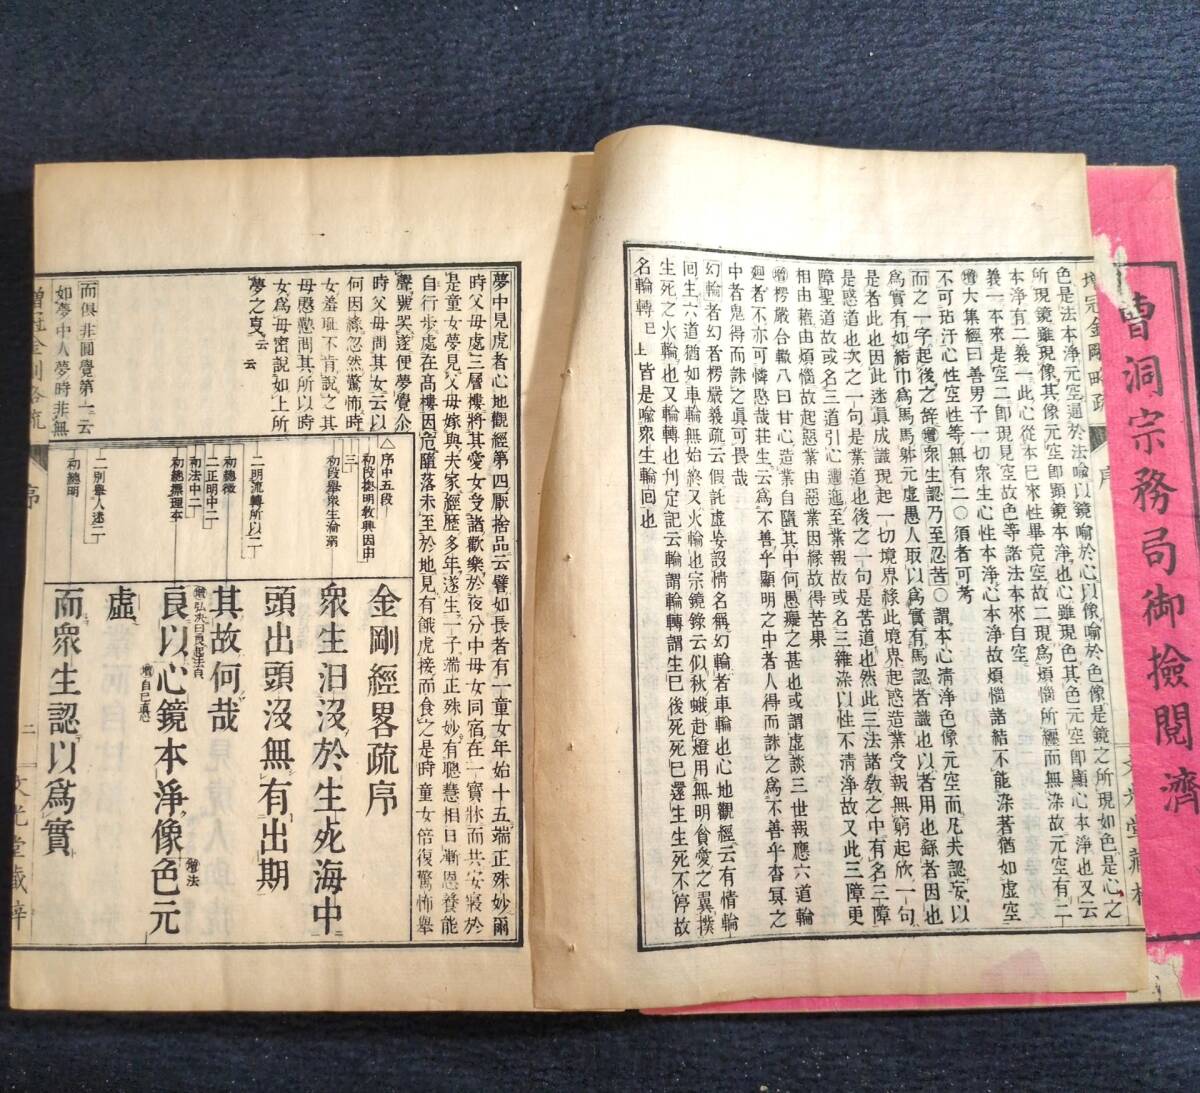 曹洞宗務局御撿閲濟
色是法本淨元空過於法喩以鏡喩於心以像喩於色像是鏡之所現如色是心之
所現鏡雖現像其像元空即顯鏡本淨也心雖現色其色元空即顯心本淨也又云
本淨有二義一此心從本已來性畢竟空故二現爲煩惱所纏而無染故元空有二
義一本來是空二即現見空故色等諸法本來自空
大集經曰善男子一切衆生心性本淨心本淨故煩惱諸結不能染著猶如虛空
不可玷汙心性空性等無有二〇須者可考
而之一字起後之辞衆生認乃至忍苦〇謂本心清淨色像元空而凡夫認妄以
爲實有如結巾爲馬馬躰元虛愚人取以爲實有馬認者識也以者用也繇者因也
是者此也因此迷眞成識現起一切境界緣此境界起惑造業受報無窮起欣一句
是惑道也次之一句是業道也後之一句是苦道也然此三法諸敎之中有名三障
障聖道故或名三道引心邐迤至業報故或名三雜染以性不清淨故又此三障更
相由藉由煩惱故起惡業由惡業因縁故得苦果
楞嚴合轍八曰甘心造業自隨其中何愚癡之甚也或謂虛談三世報應六道輪
廻者不亦可憐愍哉荘生云爲不善乎顯明之中者人得而誅之爲不善乎杳冥之
中者鬼得而誅之眞可畏哉
幻輪者幻者楞嚴義疏云假託虛妄設情名稱幻輪者車輪也心地觀經云有情輪
回生六道猶如車輪無始終又火輪也宗鏡錄云似秋蛾赴燈用無明貧愛之翼撲
生死之火輪也又輪轉也刋定記云輪謂輪轉謂生已後死死已還生生死不停故
名輪轉已上皆是喩衆生輪回也
夢中見虎者心地觀經第四厭捨品云譬如長者有一童女年始十五端正殊妙爾
時父母處三層樓將其愛女受諸歡樂於夜分中母女同宿在一寶牀而共安寢於
是童女夢見父母嫁與夫家經歷多年遂生一子端正殊妙有聰慧相日漸恩養能
自行歩處在高樓因危隨落未至於地見有餓虎接而食之是時童女倍復驚怖舉
聲號哭遂便夢覺尒
時父母問其女云以
何因緣忽然驚怖時
女羞耻不肯說之其
母慇懃問其所以時
女爲母密說如上所
夢之事云云
而俱非圓覺第一云
如夢中人夢時非無
△序中五段
初段總明敎興因由
三
初段舉衆生淪溺
二明流轉所以二
初總徴
二正明中二
初法中二
初總標理本
二別舉人迷二
初總明
金剛經畧疏序
衆生汨沒於生死海中
頭出頭沒無有出期
其故何哉
良以心鏡本淨像色元
虛
而衆生認以爲實
序
二